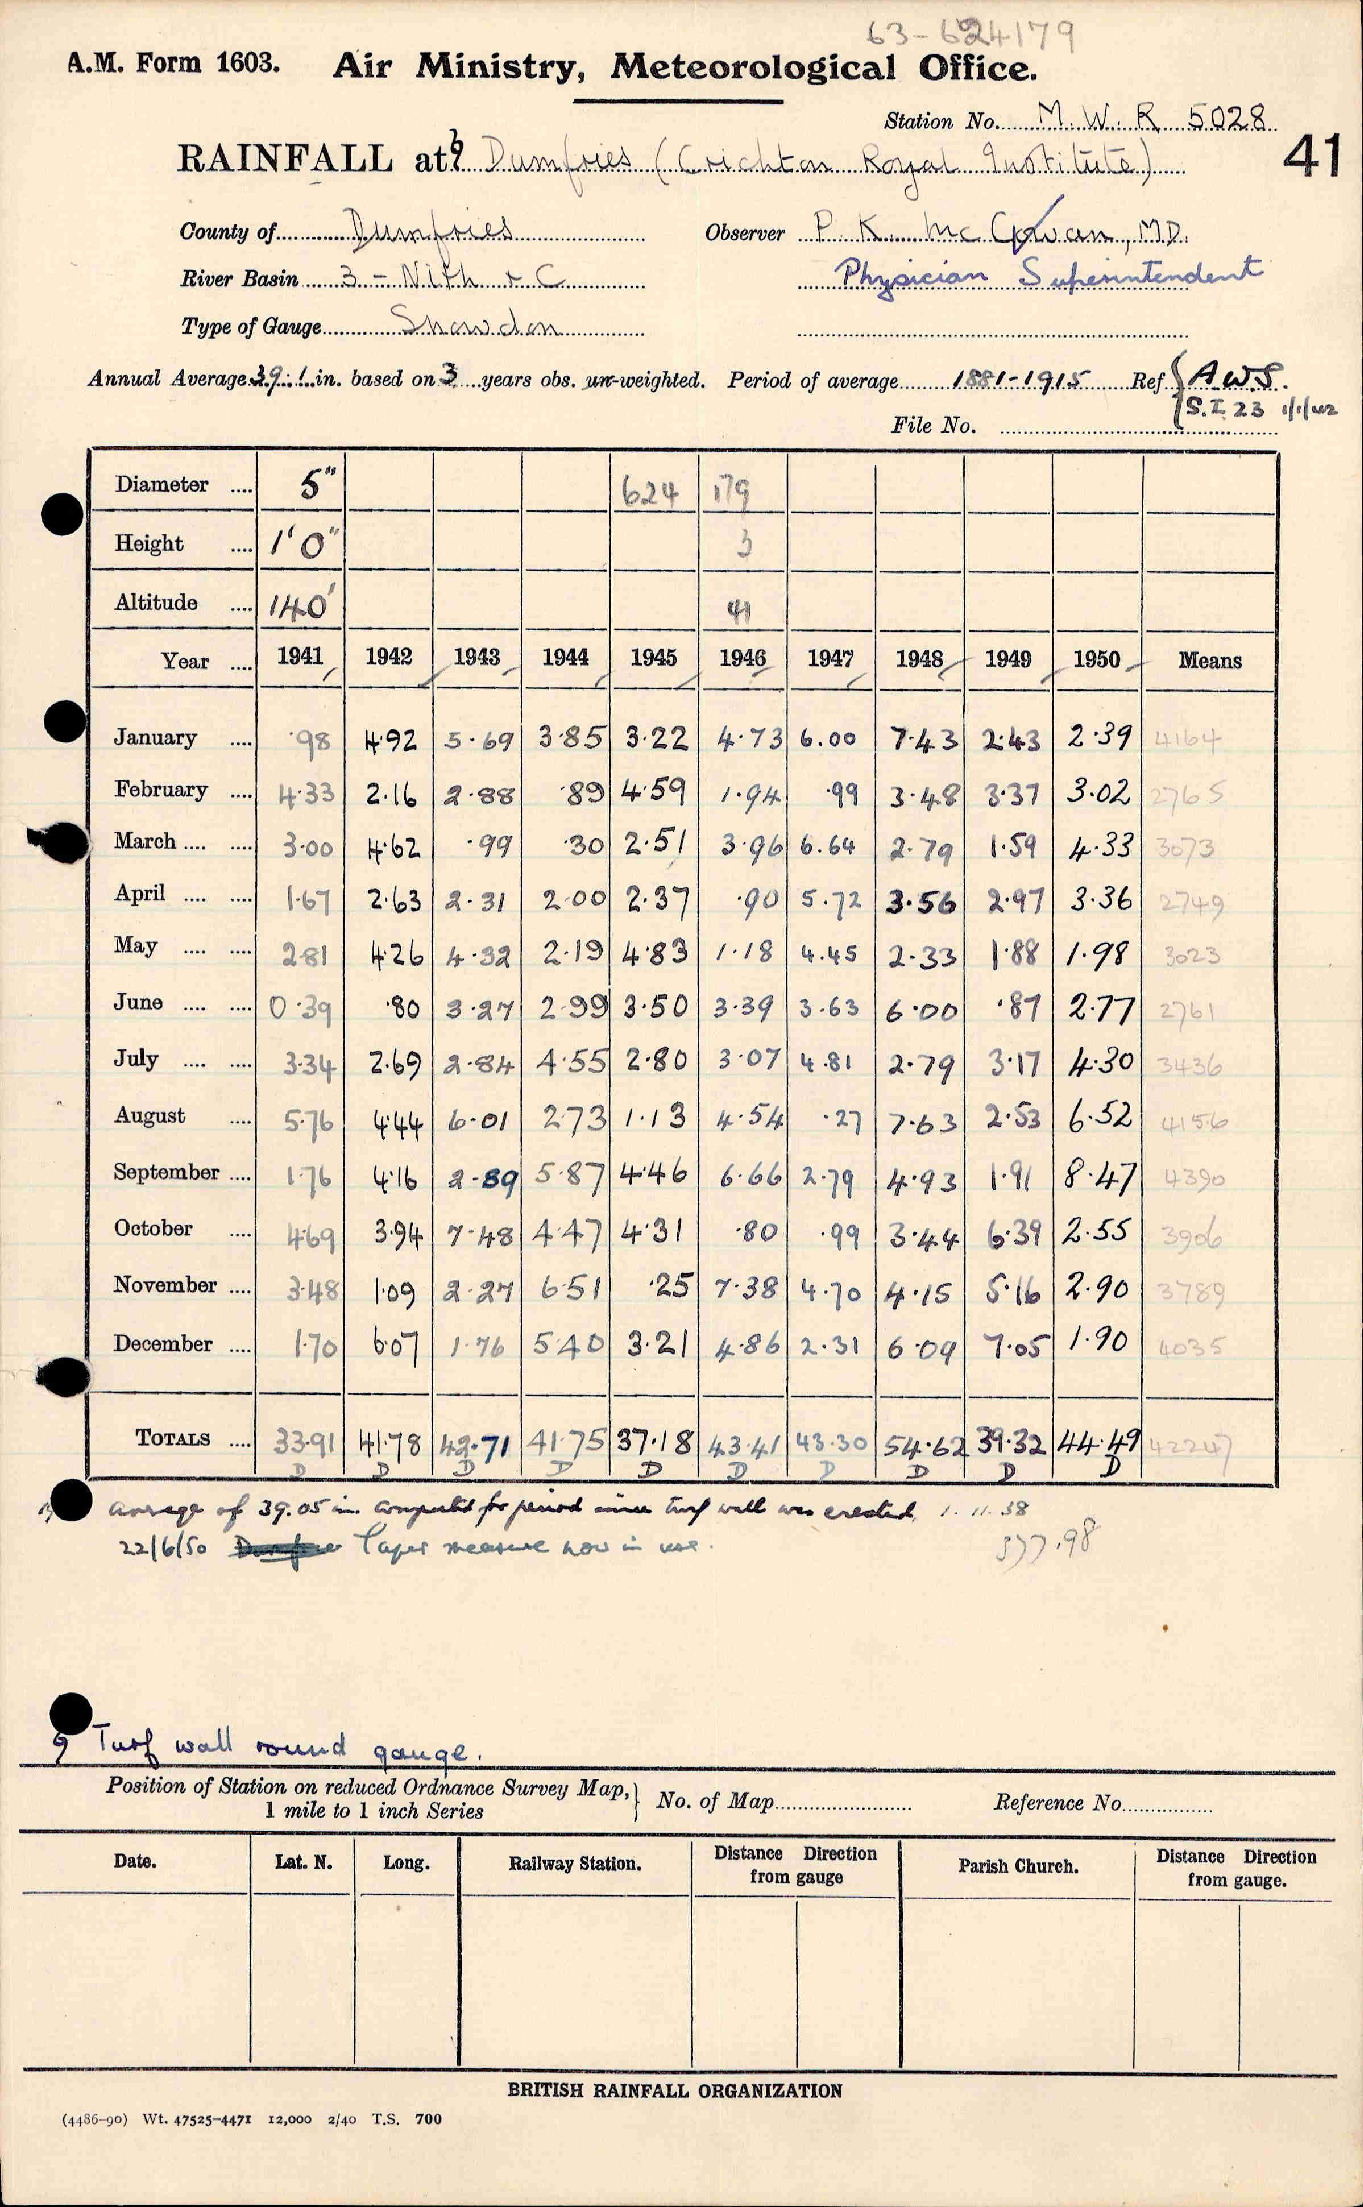 63-624179
A.M. Form 1603. Air Ministry, Meteorological Office.
Station No. M.W.R 5028
41
RAINFALL at Dumfries (Crichton Royal Institute)
County of Dumfries Observer P. K. McCowan, MD.
River Basin 3 - Nith & C Physician Superintendent
Type of Gauge Snowdon
Annual Average 39.1 in. based on 3 years obs. un-weighted. Period of average 1881-1915 Ref A.W.S.
S.I 23 1/1/42
File No.
Diameter .... 5" 624 179
Height .... 1'0" 3
Altitude .... 140' 41
Year .... 1941 1942 1943 1944 1945 1946 1947 1948 1949 1950 Means
January .... .98 4.92 5.69 3.85 3.22 4.73 6.00 7.43 2.43 2.39 4164
February .... 4.33 2.16 2.88 .89 4.59 1.94 .99 3.48 3.37 3.02 2765
March .... .... 3.00 4.62 .99 .30 2.51 3.96 6.64 2.79 1.59 4.33 3073
April .... .... 1.67 2.63 2.31 2.00 2.37 .90 5.72 3.56 2.97 3.36 2749
May .... .... 2.81 4.26 4.32 2.19 4.83 1.18 4.45 2.33 1.88 1.98 3023
June .... .... 0.39 .80 3.27 2.99 3.50 3.39 3.63 6.00 .87 2.77 2761
July .... .... 3.34 2.69 2.84 4.55 2.80 3.07 4.81 2.79 3.17 4.30 3436
August .... 5.76 4.44 6.01 2.73 1.13 4.54 .27 7.63 2.53 6.52 4156
September .... 1.76 4.16 2.89 5.87 4.46 6.66 2.79 4.93 1.91 8.47 4390
October .... 4.69 3.94 7.48 4.47 4.31 .80 .99 3.44 6.39 2.55 3906
November .... 3.48 1.09 2.27 6.51 .25 7.38 4.70 4.15 5.16 2.90 3789
December .... 1.70 6.07 1.76 5.40 3.21 4.86 2.31 6.09 7.05 1.90 4035
TOTALS .... 33.91 41.78 42.71 41.75 37.18 43.41 43.30 54.62 39.32 44.49 42247
D D D D D D D D D D
average of 39.05 in. computed for period since turf wall was erected, 1.11.38
22/6/50 Taper measure now in use.
377.98
9 Turf wall round gauge.
Position of Station on reduced Ordnance Survey Map, 1 mile to 1 inch Series } No. of Map Reference No.
Date. Lat. N. Long. Railway Station. Distance Direction from gauge Parish Church. Distance Direction from gauge.
BRITISH RAINFALL ORGANIZATION
(4486-90) Wt. 47525-4471 12,000 2/40 T.S. 700